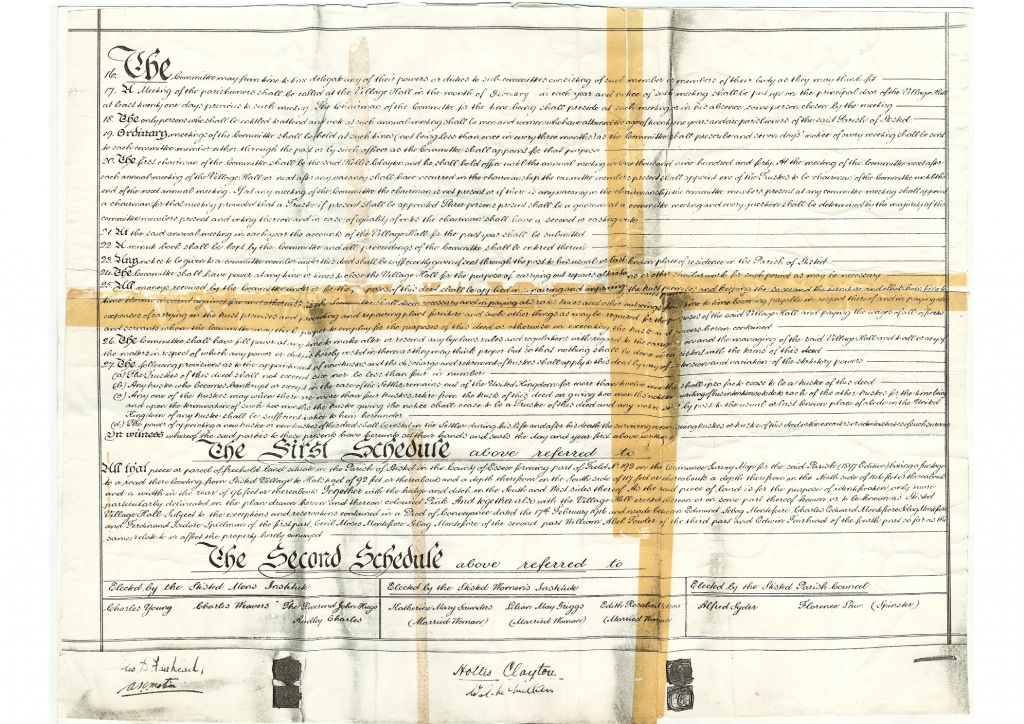 16. The Committee may from time to time delegate any of their powers or duties to sub-committees consisting of such member or members of their body as they may think fit
17. A Meeting of the parishioners shall be called at the Village Hall in the month of January in each year and notice of such meeting shall be put up on the principal door of the Village Hall
at least twenty one days previous to such meeting. The Chairman of the Committee for the time being shall preside at such meeting or in his absence some person chosen by the meeting
18. The only persons who shall be entitled to attend and vote at such annual meeting shall be men and women who have attained the age of twenty one years and are parishioners of the said Parish of Stisted
19. Ordinary meetings of the Committee shall be held at such times (not being less than once in every three months) as the Committee shall prescribe and seven days' notice of every meeting shall be sent
to each committee member either through the post or by such officer as the Committee shall appoint for that purpose
20. The first chairman of the Committee shall be the said Hollis Clayton and he shall hold office until the annual meeting in One thousand nine hundred and forty. At the meeting of the Committee next after
each annual meeting of the Village Hall or next after any vacancy shall have occurred in the chairmanship the committee members present shall appoint one of the Trustees to be chairman of the Committee until the
end of the next annual meeting. If at any meeting of the Committee the chairman is not present or if there is any vacancy in the chairmanship the committee members present at any committee meeting shall appoint
a chairman for that meeting provided that a Trustee if present shall be appointed Three persons present shall be a quorum at a committee meeting and every question shall be determined by the majority of the
committee members present and voting thereon and in case of equality of votes the chairman shall have a second or casting vote
21. At the said annual meeting in each year the accounts of the Village Hall for the past year shall be submitted
22. A minute book shall be kept by the Committee and all proceedings of the Committee shall be entered therein
23. Any notice to be given to a committee member under this deed shall be sufficiently given if sent through the post to his usual or last known place of residence in the Parish of Stisted
24. The Committee shall have power at any time or times to close the Village Hall for the purpose of carrying out repairs alterations or other similar work for such period as may be necessary
25. All moneys received by the Committee under or for the purposes of this deed shall be applied in repairing and insuring the trust premises and keeping the same and the furniture and
expenses of carrying in the trust premises and providing and repairing plant furniture and such other things as may be required for the purposes of the said Village Hall and paying the wages of all officers
and servants whom the Committee may think proper to employ for the purposes of this deed or otherwise in executing the trust and powers herein contained
26. The Committee shall have full power at any time to make alter or rescind any byelaws rules and regulations with regard to the carrying on and the managing of the said Village Hall and to all or any of
the matters in respect of which any power or duty is hereby vested in them as they may think proper but so that nothing shall be done inconsistent with the terms of this deed
27. The following provisions as to the appointment of new trustees and the discharge and retirement of trustees shall apply to this deed by way of extension and variation of the statutory powers
(a) The Trustees of this deed shall not exceed six nor be less than four in number
(b) Any trustee who becomes bankrupt or except in the case of the Settlor remains out of the United Kingdom for more than twelve months shall ipso facto cease to be a trustee of this deed
(c) Any one of the trustees may when there are more than four trustees retire from the trusts of this deed on giving two months notice in writing of his intention so to do to each of the other trustees for the time being
and upon the termination of such two months the trustee giving the notice shall cease to be a Trustee of this deed and any notice sent by post to the usual or last known place of abode in the United
Kingdom of any trustee shall be sufficient notice to him hereunder
(d) The power of appointing a new trustee or new trustees of this deed shall be vested in the Settlor during his life and after his death the surviving or continuing trustees
In witness whereof the said parties to these presents have hereunto set their hands and seals the day and year first above written
The First Schedule above referred to
All that piece or parcel of freehold land situate in the Parish of Stisted in the County of Essex forming part of Field No 192 on the Ordnance Survey Map for the said Parish (1897 Edition) having a frontage
to a road there leading from Stisted Village to Halstead of 92 feet or thereabouts and a depth therefrom on the South side of 117 feet or thereabouts a depth therefrom on the North side of 116 feet or thereabouts
and a width in the rear of 96 feet or thereabouts Together with the hedge and ditch on the South and West sides thereof As the said piece of land is for the purpose of identification only more
particularly delineated on the plan drawn hereon and thereon coloured Pink And together also with the Village Hall erected thereon or on some part thereof known or to be known as Stisted
Village Hall Subject to the exceptions and reservations contained in a Deed of Conveyance dated the 17th February 1916 and made between Edmund Sebag Montefiore Charles Edward Montefiore Sebag Montefiore
and Ferdinand Isidore Spielman of the first part Cecil Moses Montefiore Sebag Montefiore of the second part William Abel Towler of the third part and Edwin Fairhead of the fourth part so far as the
same relate to or affect the property hereby conveyed
The Second Schedule above referred to
Elected by the Stisted Mens Institute
Elected by the Stisted Women's Institute
Elected by the Stisted Parish Council
Charles Young
Charles Weavers
The Reverend John Hugo
Audley Charles
Katherine Mary Saunders
(Married Woman)
Lilian May Griggs
(Married Woman)
Edith Rosabel
(Married Woman)
Alfred Syder
Florence Law (Spinster)
Hollis Clayton